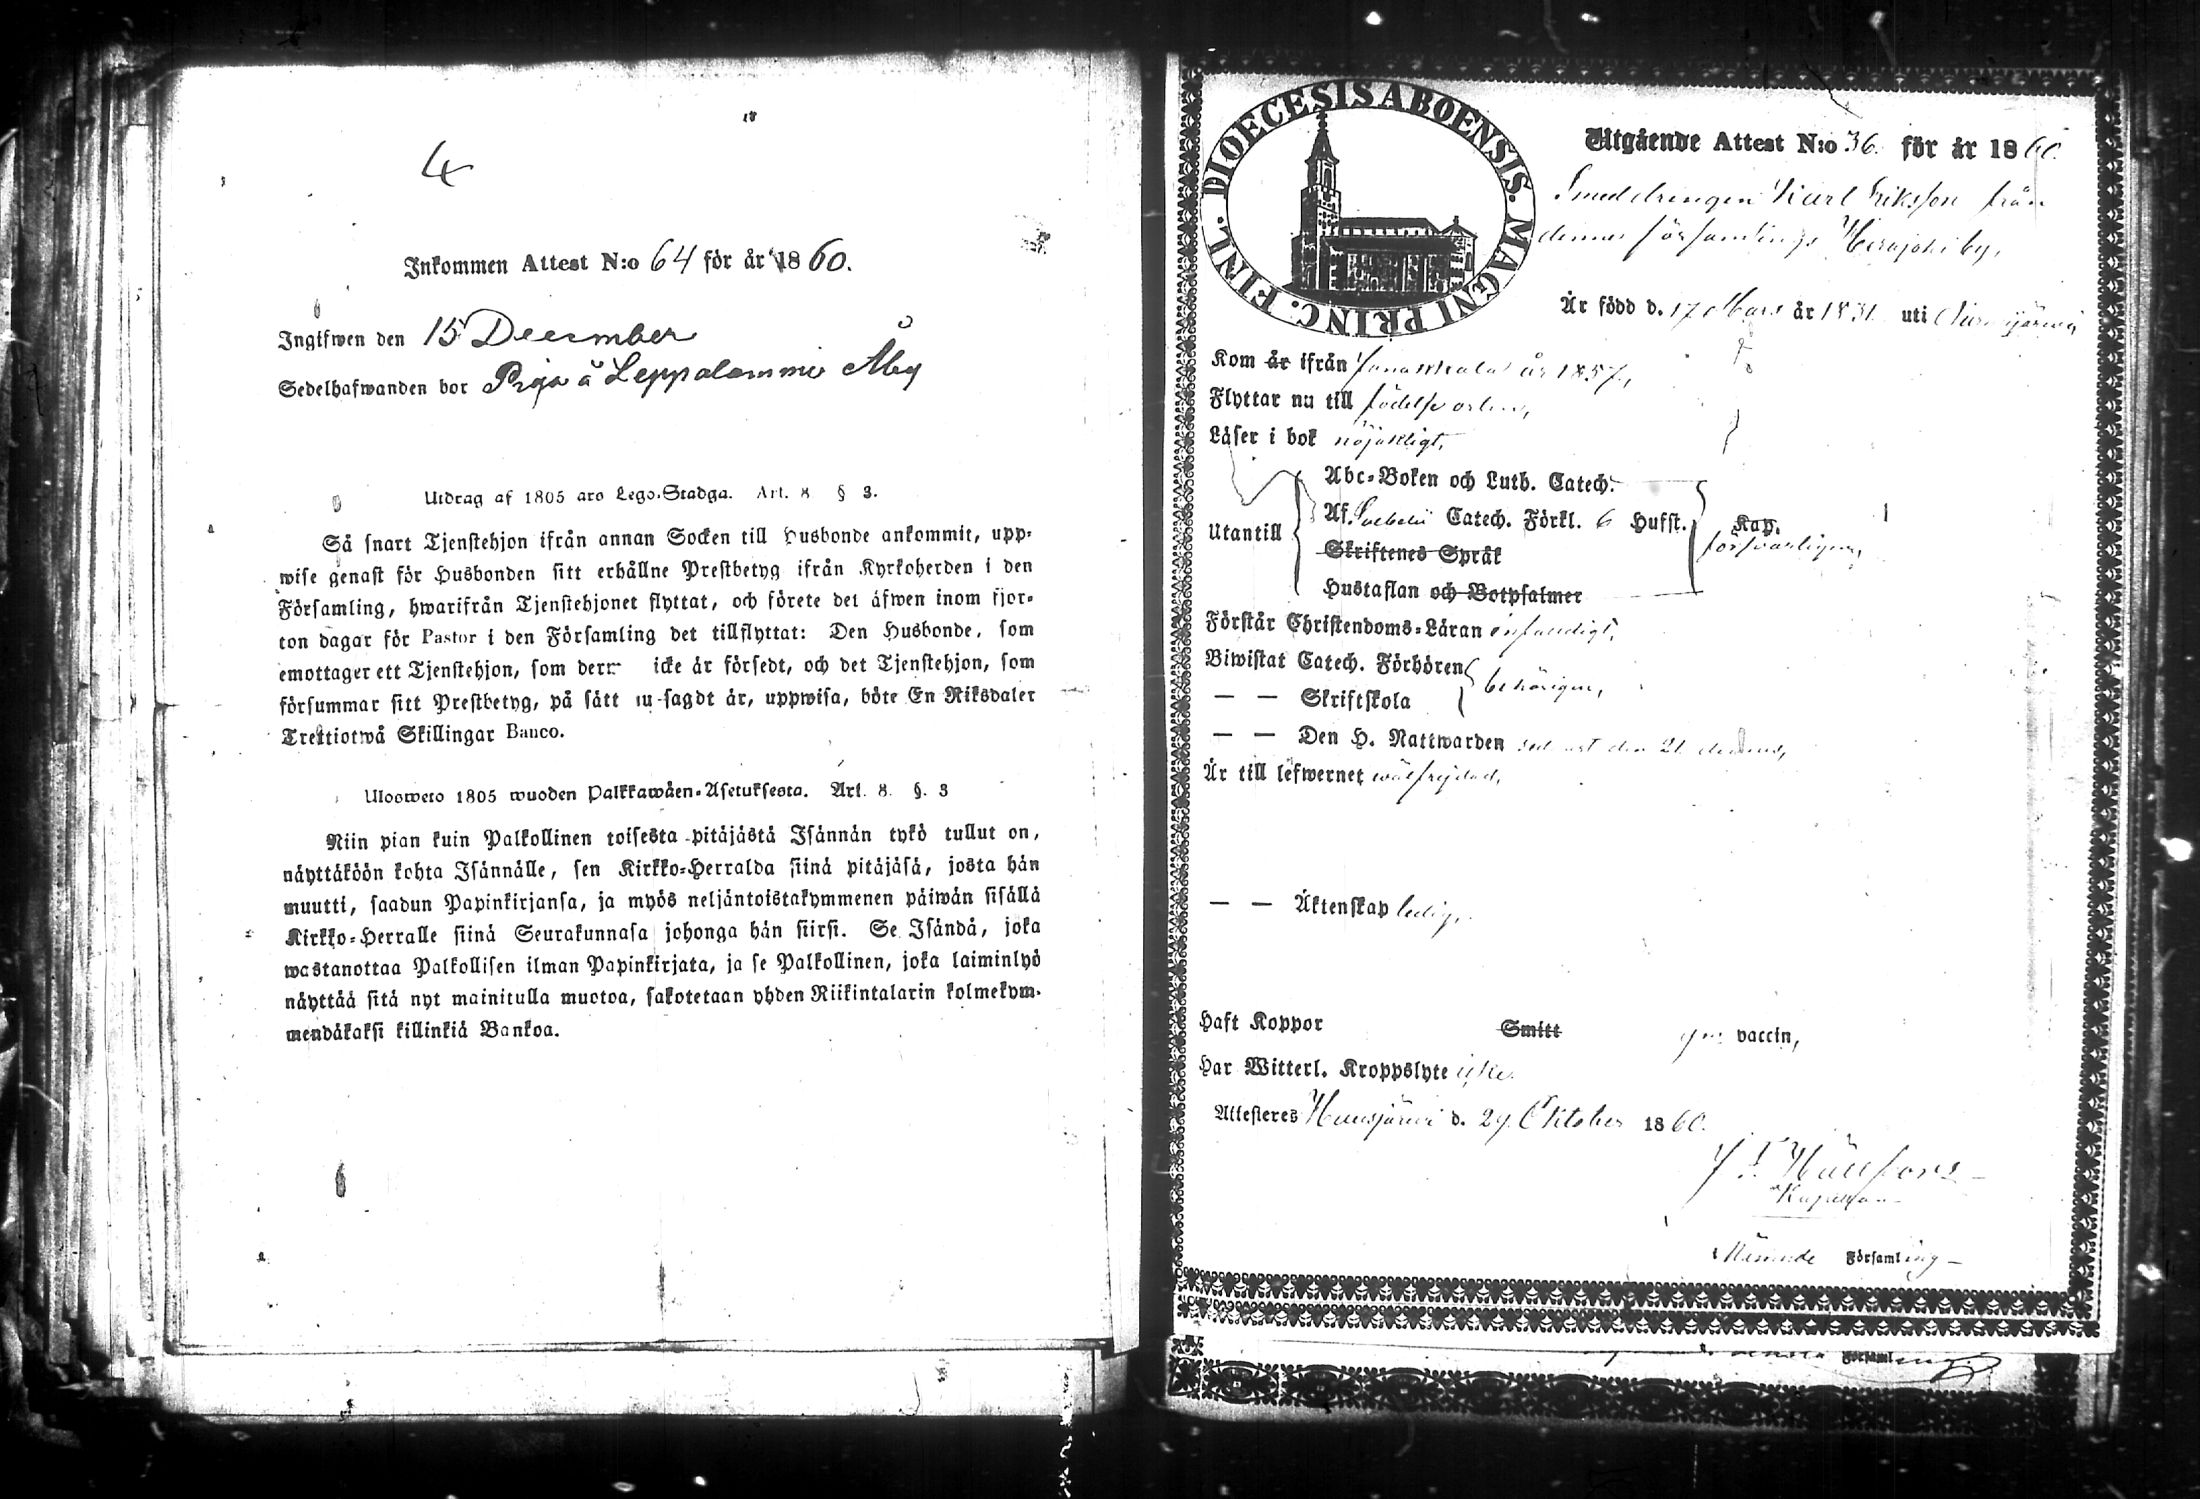 4
Inkommen Attest N:o 64 för år 1860.
Ingifwen den 15 December
Sedelhafwanden bor Piga å Leppalammi Åby
Utdrag af 1805 års Lego-Stadga. Art. 8 § 3.
Så snart Tjenstehjon ifrån annan Socken till Husbonde ankommit, upp-
wise genast för Husbonden sitt erhållne Prestbetyg ifrån Kyrkoherden i den
Församling, hwarifrån Tjenstehjonet flyttat, och förete det äfwen inom fjor-
ton dagar för Pastor i den Församling det tillflyttat: Den Husbonde, som
emottager ett Tjenstehjon, som dermed icke är försedt, och det Tjenstehjon, som
försummar sitt Prestbetyg, på sätt nu sagdt är, uppwisa, böte En Riksdaler
Trettiotwå Skillingar Banco.
Ulosweto 1805 wuoden Palkkawäen-Asetuksesta. Art. 8. §. 3
Niin pian kuin Palkollinen toisesta pitäjästä Isännän tykö tullut on,
näyttäköön kohta Isännälle, sen Kirkko-Herralda siinä pitäjäsä, josta hän
muutti, saadun Papinkirjansa, ja myös neljäntoistakymmenen päiwän sisällä
Kirkko-Herralle siinä Seurakunnasa johonga hän siirsi. Se Isändä, joka
wastanottaa Palkollisen ilman Papinkirjata, ja se Palkollinen, joka laiminlyö
näyttää sitä nyt mainitulla muotoa, sakotetaan yhden Riikintalarin kolmekym-
mendäkaksi killinkiä Bankoa.
DIOECESIS ABOENSIS. MAGNI PRINC. FINL.
Utgående Attest N:o 36. för år 1860.
Smeddrengen Karl Eriksson från
denna församlings Herajoki by,
Är född d. 17 Mars år 1831 uti
Kom år ifrån Janakkala år 1857,
Flyttar nu till födelse orten,
Läser i bok nöjaktigt,
Utantill
Abc-Boken och Luth. Catech.
Af Svebelii Catech. Förkl. 6 Hufst. Kap.
försvarligen,
Skriftenes Språk
Hustaflan och Botpsalmer
Förstår Christendoms-Läran enfaldigt,
Biwistat Catech. Förhören
behörigen,
— — Skriftskola
— — Den H. Nattwarden sednast den 21 dennes,
Är till lefwernet wälfrejdad,
— — Äktenskap ledig,
Haft Koppor Smitt gm vaccin,
Har Witterl. Kroppslyte icke.
Attesteres Hausjärvi d. 29 Oktober 1860.
Kapellan
Församling
Församling